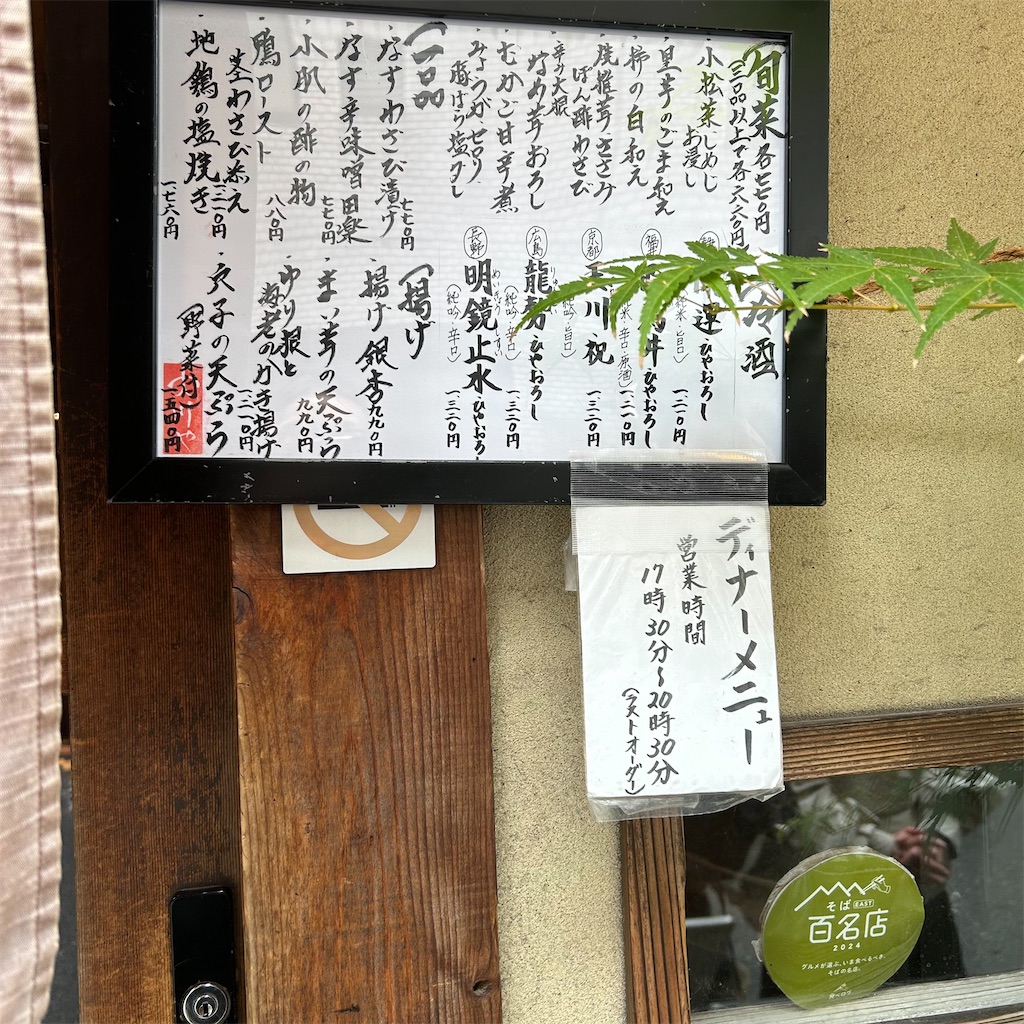 旬菜 各七七0円
(三品以上で各六六0円)
・小松菜しめじ
お浸し
・里芋のごま和え
・柿の白和え
・焼椎茸ささみ
ぽん酢わさび
・辛み大根
なめ茸おろし
・むかご甘辛煮
・みょうが、セロリ、
豚ばら塩蒸し
一品
・なすわさび漬け
七七0円
・なす辛味噌田楽
七七0円
・小肌の酢の物
八八0円
・鴨ロースト
茎わさび添え
一三二0円
・地鶏の塩焼き
一七六0円
冷酒
ひやおろし
(純米・旨口)
一二一0円
ひやおろし
(純米・辛口・原酒)
一二一0円
京都
玉川 祝
(純吟・旨口)
一三二0円
広島
龍勢 ひやおろし
(純吟・辛口)
一三二0円
長野
明鏡止水 ひやおろし
めいきょうしすい
(純吟・辛口)
一三二0円
揚げ
・揚げ銀杏 九九0円
・まい茸の天ぷら
九九0円
・ゆり根と
海老のかき揚げ
一三二0円
・穴子の天ぷら
(野菜付)
一五四0円
ディナーメニュー
営業時間
17時30分~20時30分
(ラストオーダー)
そば EAST
百名店
2024
グルメが選ぶ、いま食べるべき、
そばの名店。
食べログ